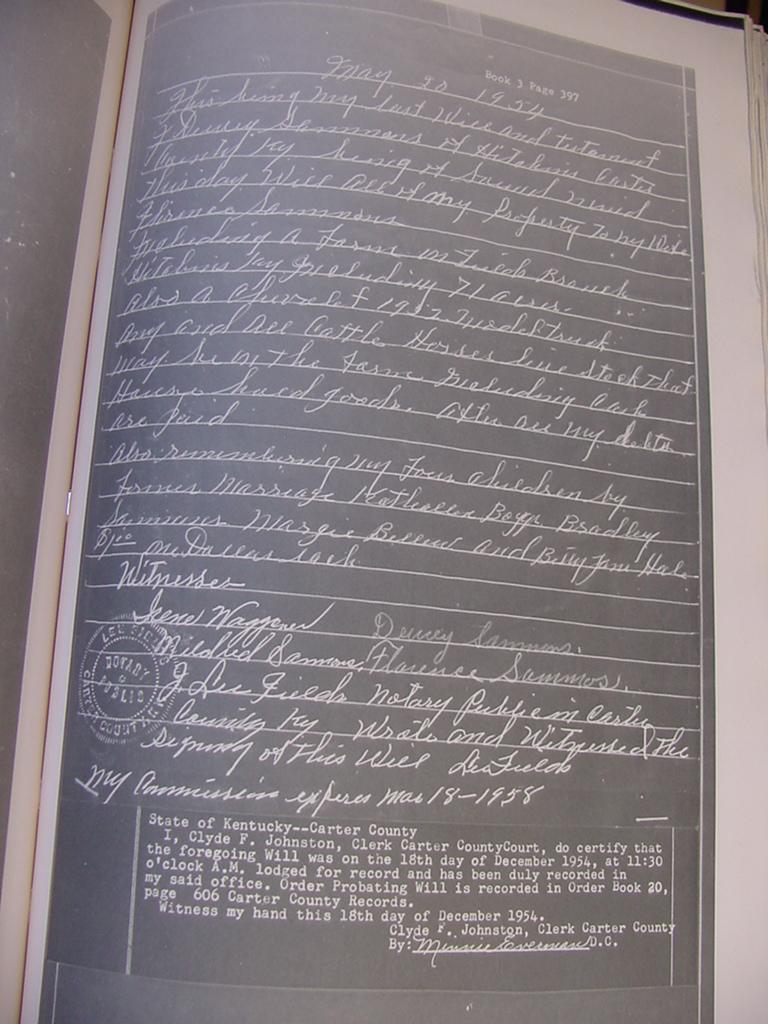 Book 3 Page 397
May 20 1954
This being my last Will and testament
I Dewey Sammons of Hitchins Carter
County Ky being of sound mind
this day Will all of my Property to my Wife
Florence Sammons
Including a Farm on Fields Branch
Hitchins Ky Including 71 acres.
Also a Chevrolet 1937 model truck
Any and all Cattle Horses live stock that
may be on the farm Including Cash
House hold goods. After all my debts
are paid
Also remembering my four children by
former marriage Kathaleen Boggs Bradley
Sammons Margie and Betty Jane Hale
$1.00 one Dollar each
Witnesses
Irene Waggoner Dewey Sammons.
Mildred Sammons Florence Sammos.
I Lee Fields Notary Public in Carter
County Ky Wrote and Witnessed the
signing of this Will Lee Fields
My Commission expires Mar 18-1958
LEE FIELDS
NOTARY
PUBLIC
CARTER COUNTY
State of Kentucky--Carter County
I, Clyde F. Johnston, Clerk Carter CountyCourt, do certify that
the foregoing Will was on the 18th day of December 1954, at 11:30
o'clock A.M. lodged for record and has been duly recorded in
my said office. Order Probating Will is recorded in Order Book 20,
page 606 Carter County Records.
Witness my hand this 18th day of December 1954.
Clyde F. Johnston, Clerk Carter County
By: Minnie Everman D.C.